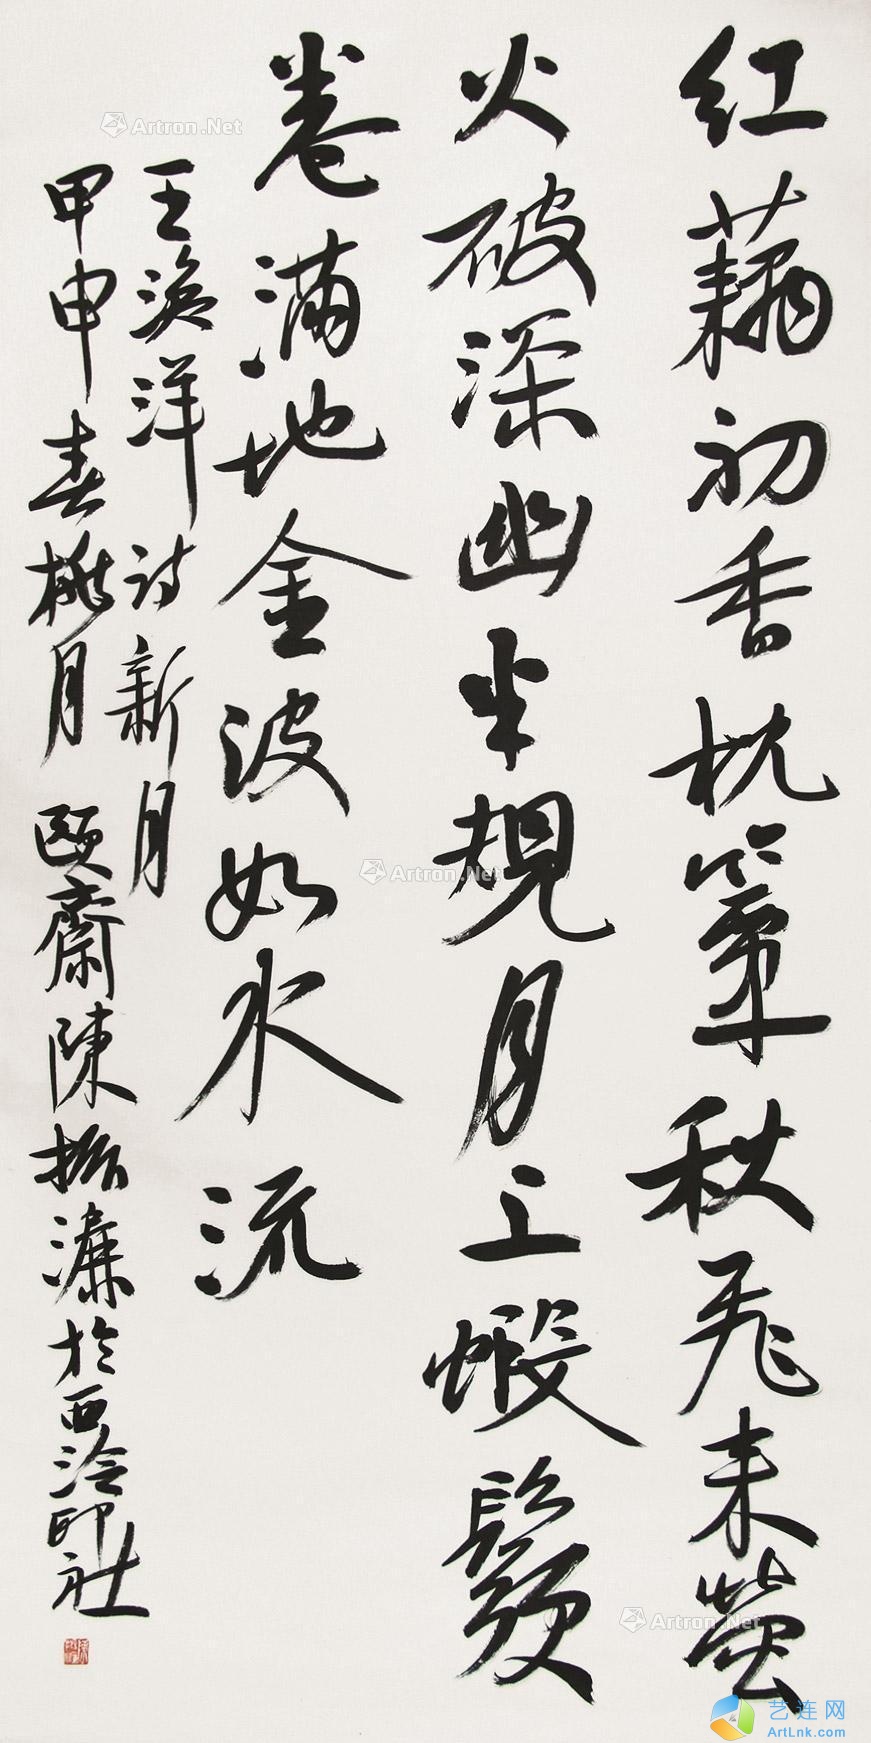 红藕初香枕簟秋飛来螢
火破深幽半規月上蝦鬚
卷满地金波如水流
王漁洋诗新月
甲申春桃月 頤齋陳振濂於西泠印社
Artron.Net
Artron.Net
Artron.Net
艺连网
ArtLnk.com